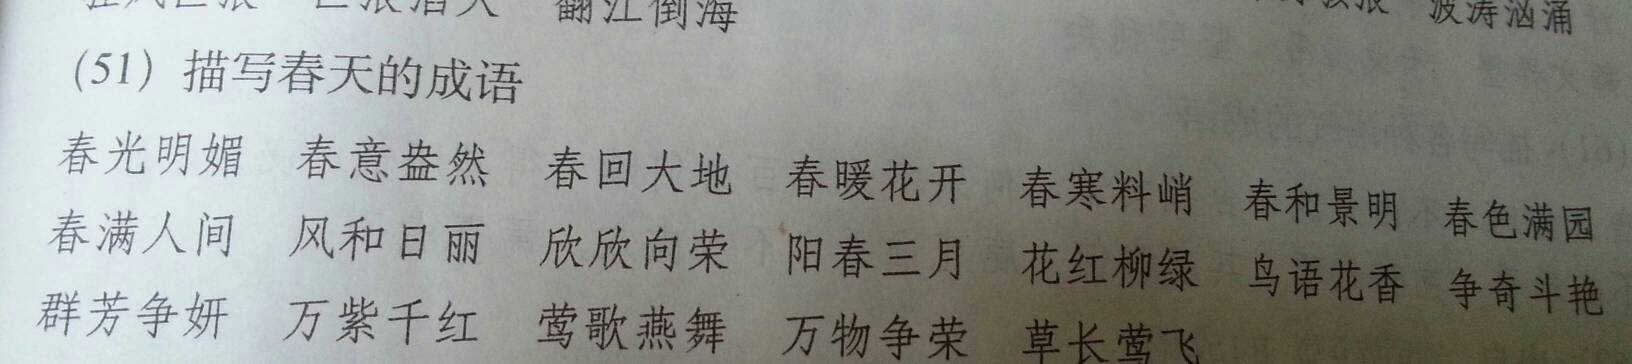 翻江倒海 波涛汹涌
(51) 描写春天的成语
春光明媚 春意盎然 春回大地 春暖花开 春寒料峭 春和景明 春色满园
春满人间 风和日丽 欣欣向荣 阳春三月 花红柳绿 鸟语花香 争奇斗艳
群芳争妍 万紫千红 莺歌燕舞 万物争荣 草长莺飞